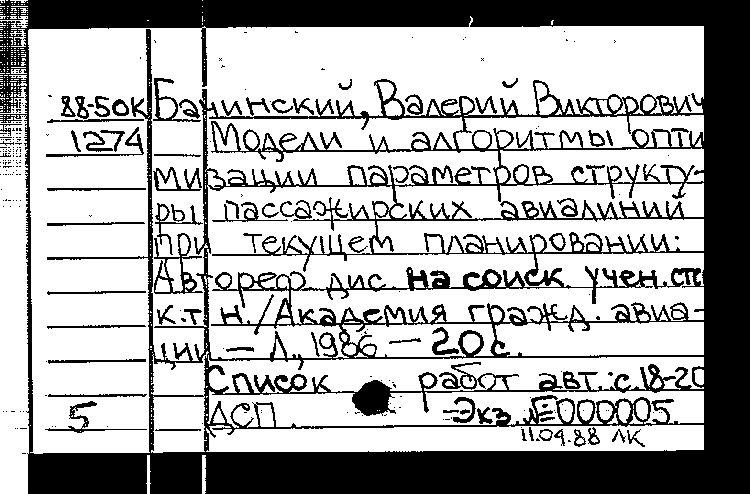 88-50к Бачинский, Валерий Викторович
1274 Модели и алгоритмы опти
мизации параметров структу-
ры пассажирских авиалиний
при текущем планировании:
Автореф дис. на соиск. учен. сте
к.т.н./Академия гражд. авиа-
ции. — Л., 1986. — 20 с.
Список работ авт.: с. 18-20
5 ДСП. Экз. №000005.
11.04.88 ЛК